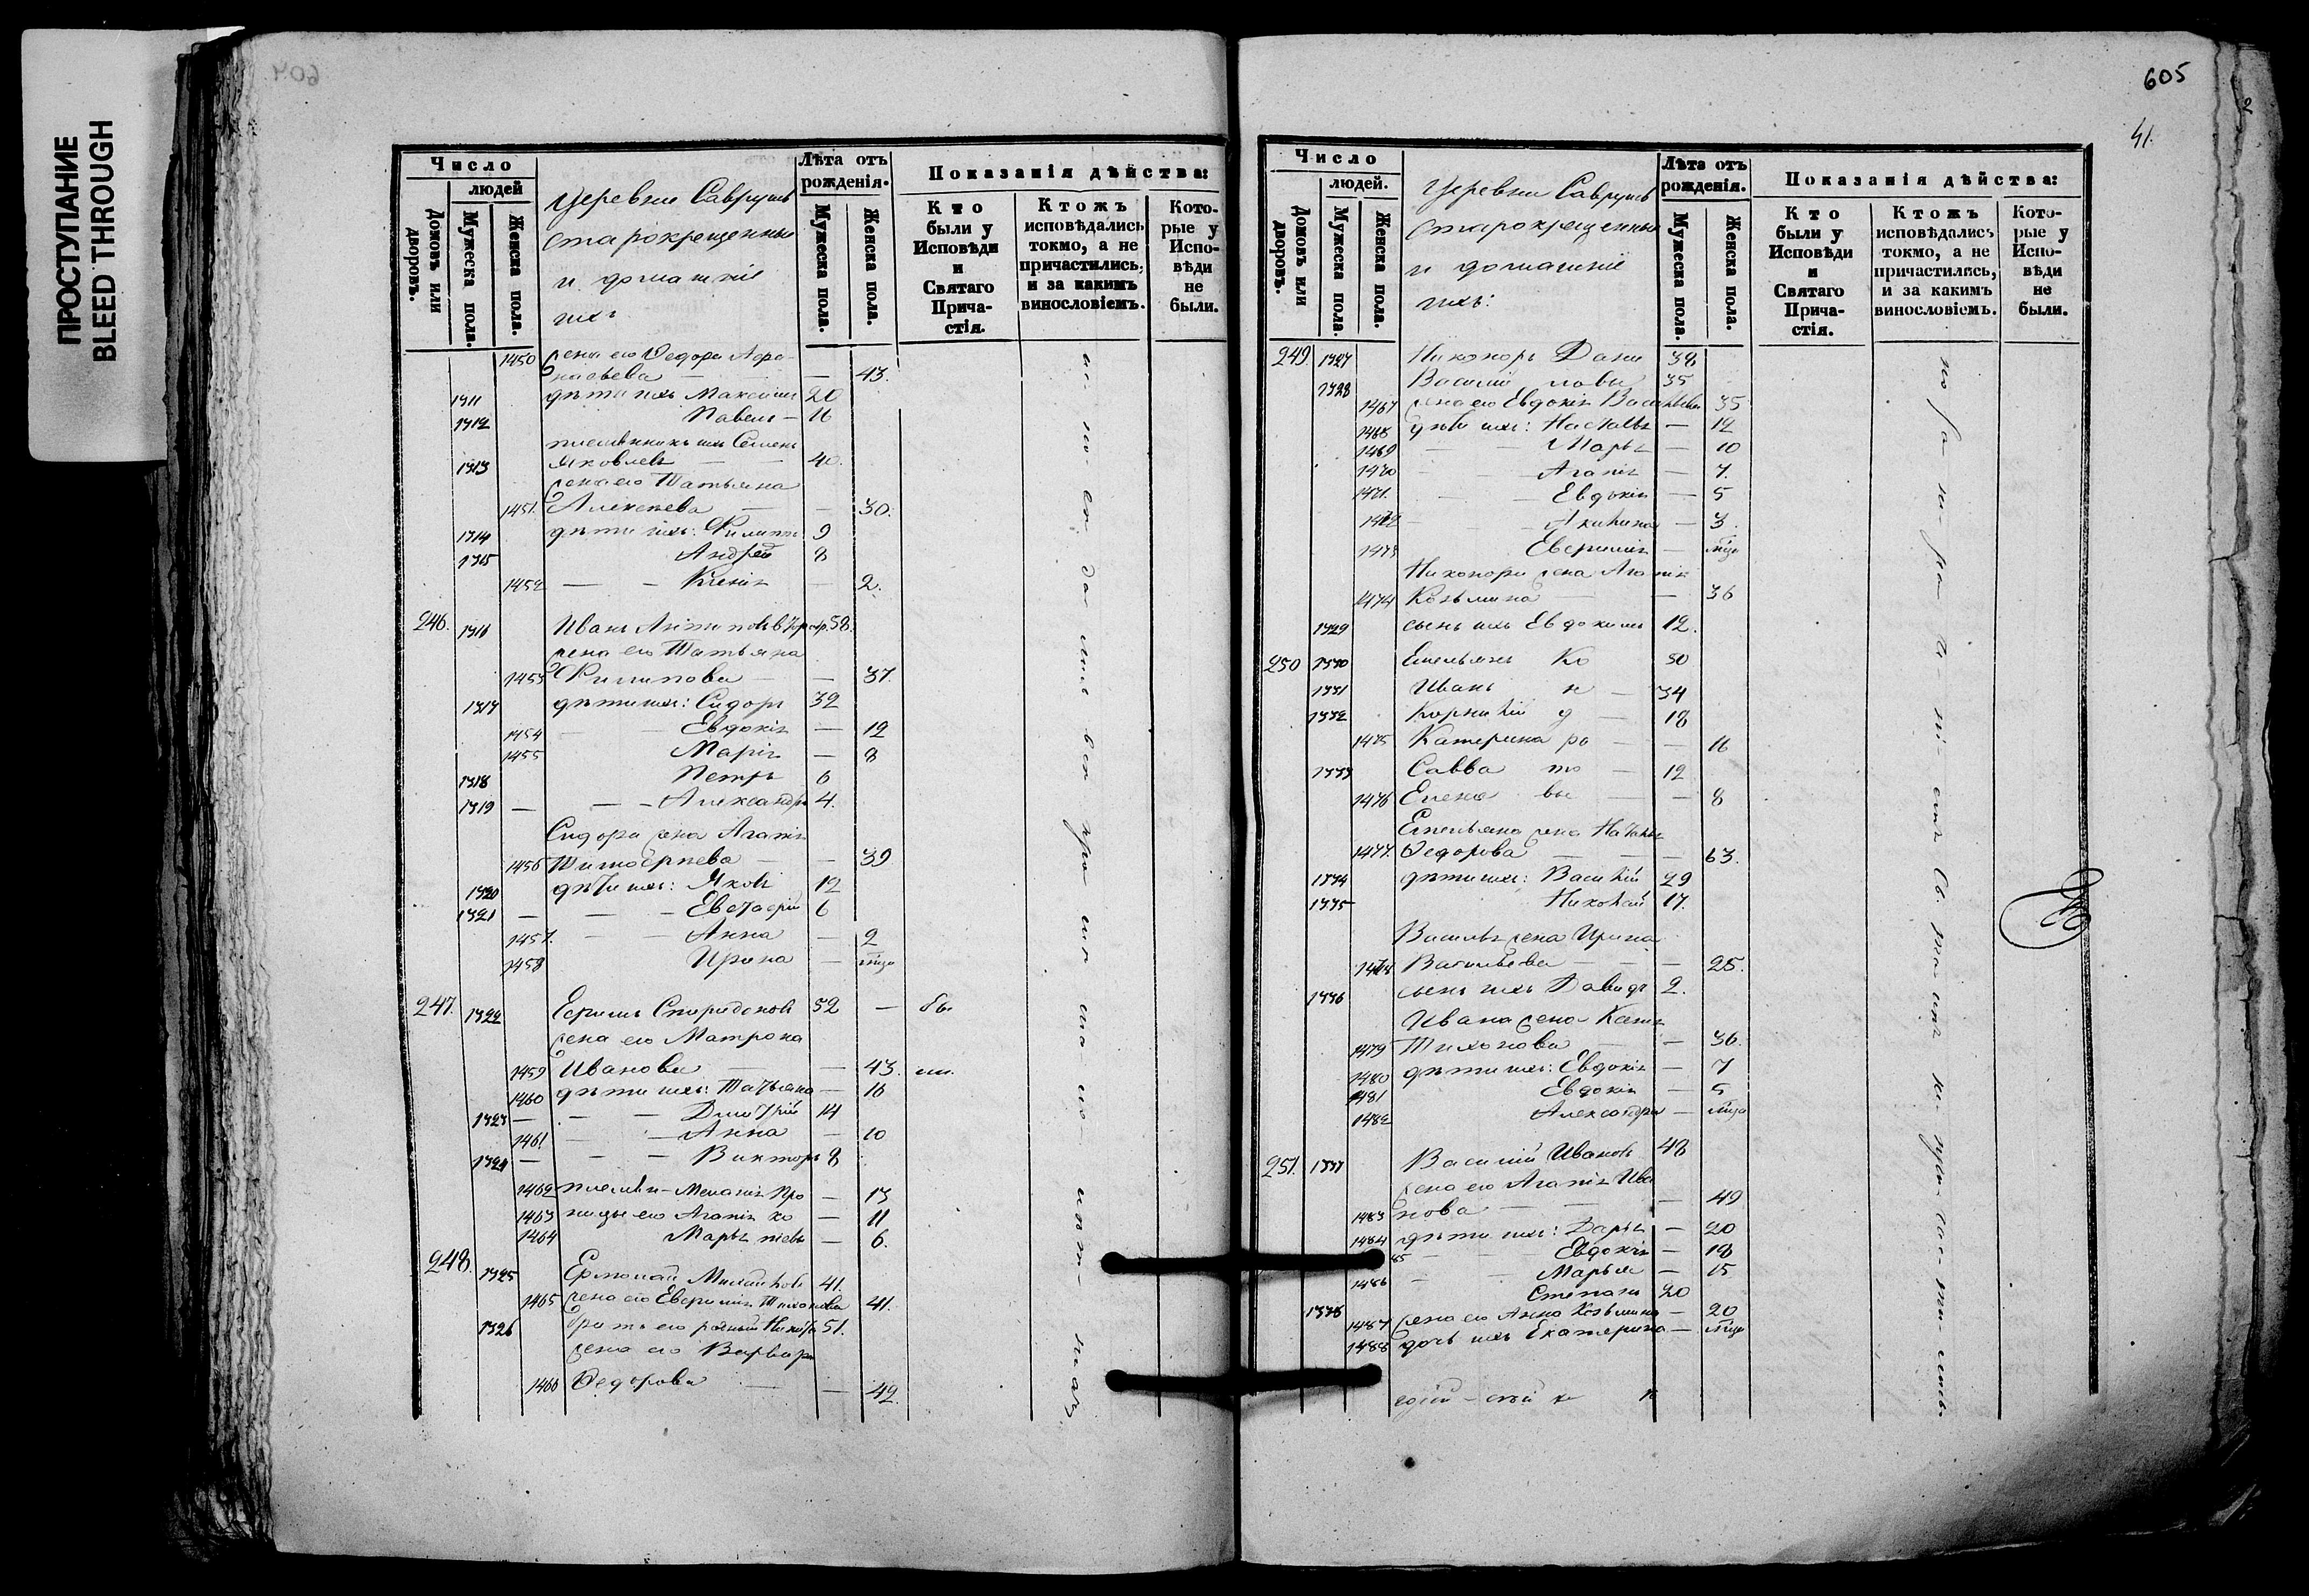 ПРОСТУПАНИЕ
BLEED THROUGH
Число
людей
Домовъ или дворовъ.
Мужеска пола.
Женска пола.
Деревни Саврушъ
старокрещенные
и домашніе
ихъ
Лѣта отъ
рожденія.
Мужеска пола.
Женска пола.
Показанія дѣйства:
Кто
были у
Исповѣди
и
Святаго
Прича-
стія.
Ктожъ
исповѣдались
токмо, а не
причастились,
и за какимъ
винословіемъ.
Кото-
рые у
Испо-
вѣди
не
были.
1450 жена его Ѳедора Афа-
насьева — — 43.
1311 дѣти ихъ Максимъ 20
1312 Павелъ — 16
племянникъ ихъ Семенъ
1313 Яковлевъ — — 40.
жена его Татьяна
1451. Алексѣева — — 30.
1314 дѣти ихъ: Филиппъ 9
1315 Андрей 8
1452 — — Ксенія — 2.
246. 1316 Иванъ Антиповъ 58.
жена его Татьяна
1453 Филипова — — 37.
1317 дѣти ихъ: Сидоръ 32
1454 — — Евдокія — 12
1455 Марія — 8
1318 Петръ 6
1319 — — Александръ 4.
Сидора жена Агапія
1456 Тимофѣева — — 39
1320 дѣти ихъ: Яковъ 12
1321 — — Евстафій 6
1457. — — Анна — 2
1458 Ирина —
247. 1322 Ефимъ Спиридоновъ 52 — бы
жена его Матрона
1459 Иванова — — 43. ли.
1460 дѣти ихъ: Татьяна — 16
1323 — — Димитрій 14
1461 — — Анна — 10
1324 — — Викторъ 8
1462 племян- Меланія Про — 13
1463 ницы его Агапія ко — 11
1464 Марья піевы — 6.
248. 1325 Ермолай Михайловъ 41.
1465 жена его Евфимія Тихонова 41.
1326 братъ его родный Никита 51.
жена его Варвара
1466 Ѳедорова — — 42.
605
41.
Число
людей.
Домовъ или дворовъ.
Мужеска пола.
Женска пола.
Деревни Саврушъ
старокрещенные
и домашніе
ихъ:
Лѣта отъ
рожденія.
Мужеска пола.
Женска пола.
Показанія дѣйства:
Кто
были у
Исповѣди
и
Святаго
Прича-
стія.
Ктожъ
исповѣдались
токмо, а не
причастились,
и за какимъ
винословіемъ.
Кото-
рые у
Испо-
вѣди
не
были.
249. 1327 Никоноръ Дани 38
1328 Василій ловы 35
1467 жена его Евдокія Васильева 35
1468 дѣти ихъ: Наталья — 12
1469 — — Марья — 10
1470 — — Агапія — 7.
1471. — — Евдокія — 5
1472 — — Акилина — 3.
1473 Евфимія —
Никонора жена Агапія
1474 Козьмина — — 36
1329 сынъ ихъ Евдокимъ 12.
250 1330 Емельянъ Ко 50
1331 Иванъ н — 34
1332 Корнилій д — 18
1475 Катерина ра — — 16
1333 Савва то — 12
1476 Елена вы — — 8
Емельяна жена Наталья
1477. Ѳедорова — — 63.
1334 дѣти ихъ: Василій 29
1335 Николай 17.
Василья жена Ирина
1478 Васильева — — 25.
1336 сынъ ихъ Давидъ 2.
Ивана жена
1479 Тихонова — — 36.
1480 дѣти ихъ: Евдокія — 7
1481 Евдокія — 5
1482 Александра —
251. 1337 Василій Ивановъ 48
жена его Агапія Ива
1483 нова — — 49
1484 дѣти ихъ: Дарья — 20
85 — — Евдокія — 18
1486 — — Марья — 15
Степанъ 20
1338
1487 жена его Анна Козьмина — 20
1488 дочь ихъ Екатерина —